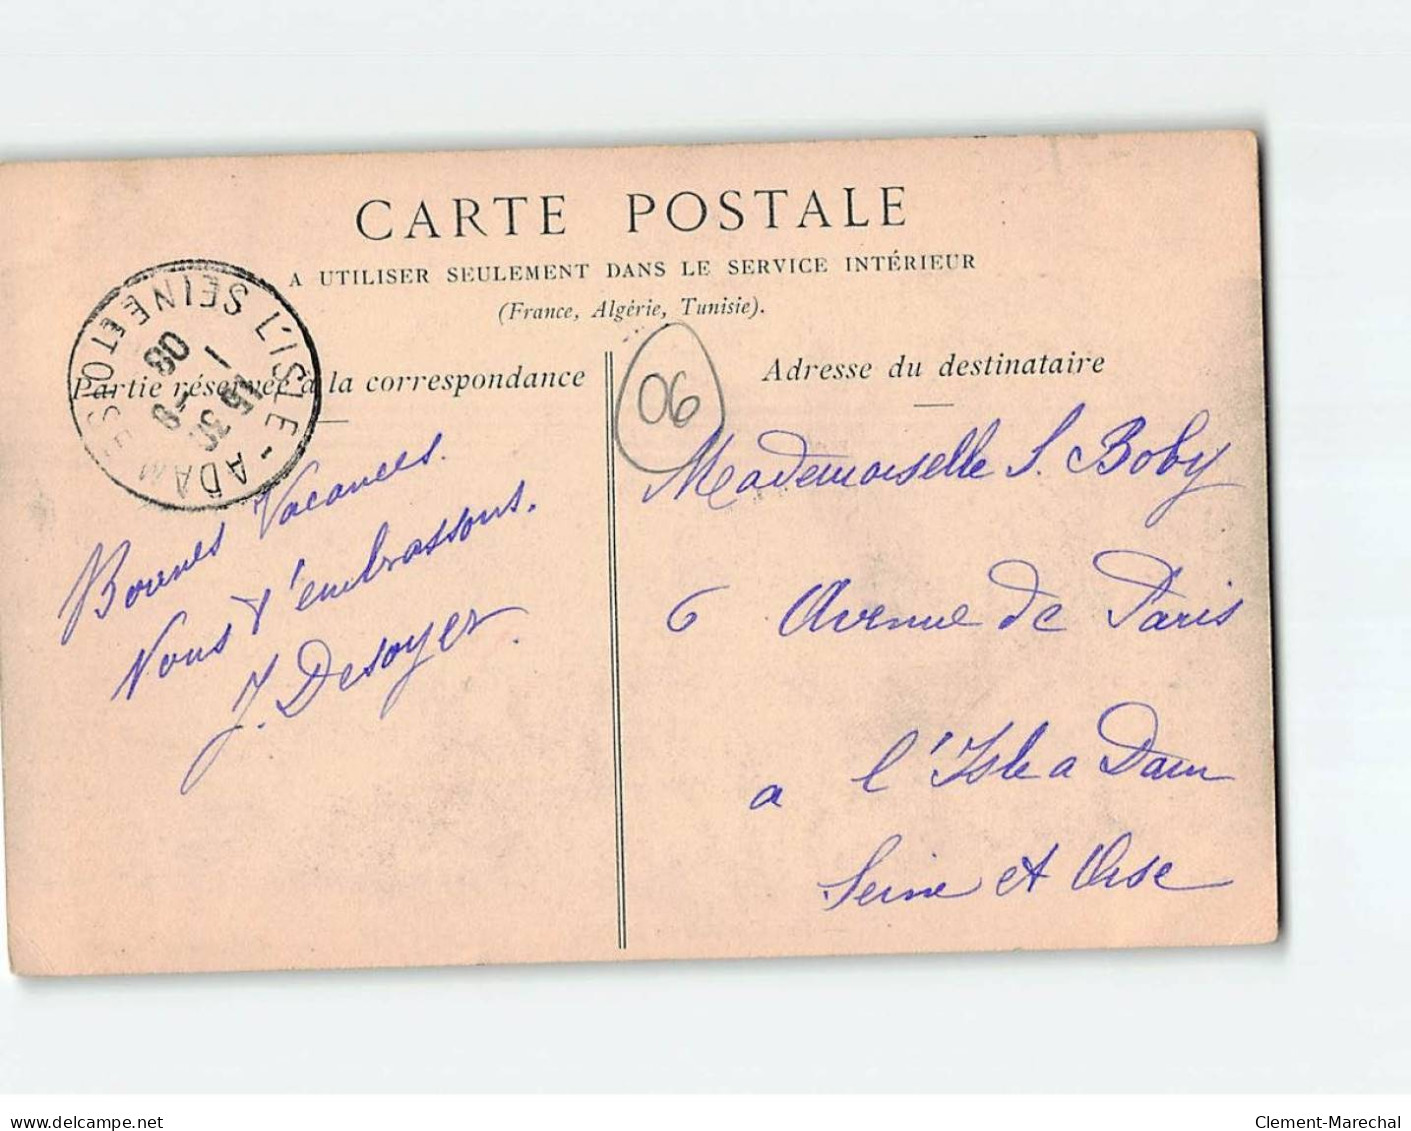 CARTE POSTALE
A UTILISER SEULEMENT DANS LE SERVICE INTÉRIEUR
(France, Algérie, Tunisie).
Partie réservée à la correspondance
Adresse du destinataire
L'ISLE-ADAM
SEINE ET OISE
08
06
Bonnes Vacances.
Nous t'embrassons.
J. Desoyer.
Mademoiselle S. Boby
6 Avenue de Paris
a l'Isle a Dam
Seine et Oise
www.delcampe.net
Clement-Marechal